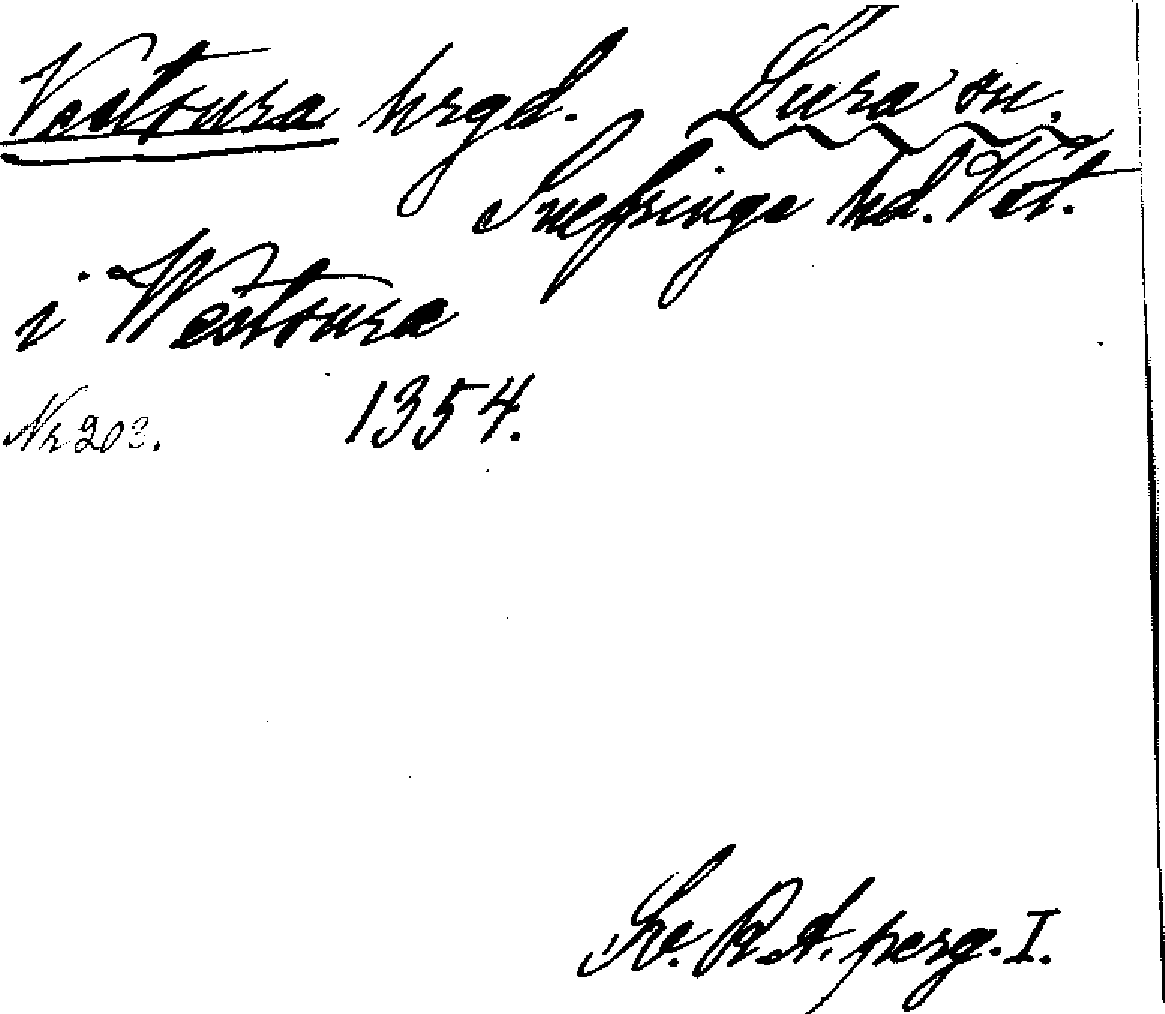 Vestsura hrgd. Sura sn.
Snefringe hd. Vst.
i Westsura
Nr 203. 1354.
Sv. R.A. perg. I.